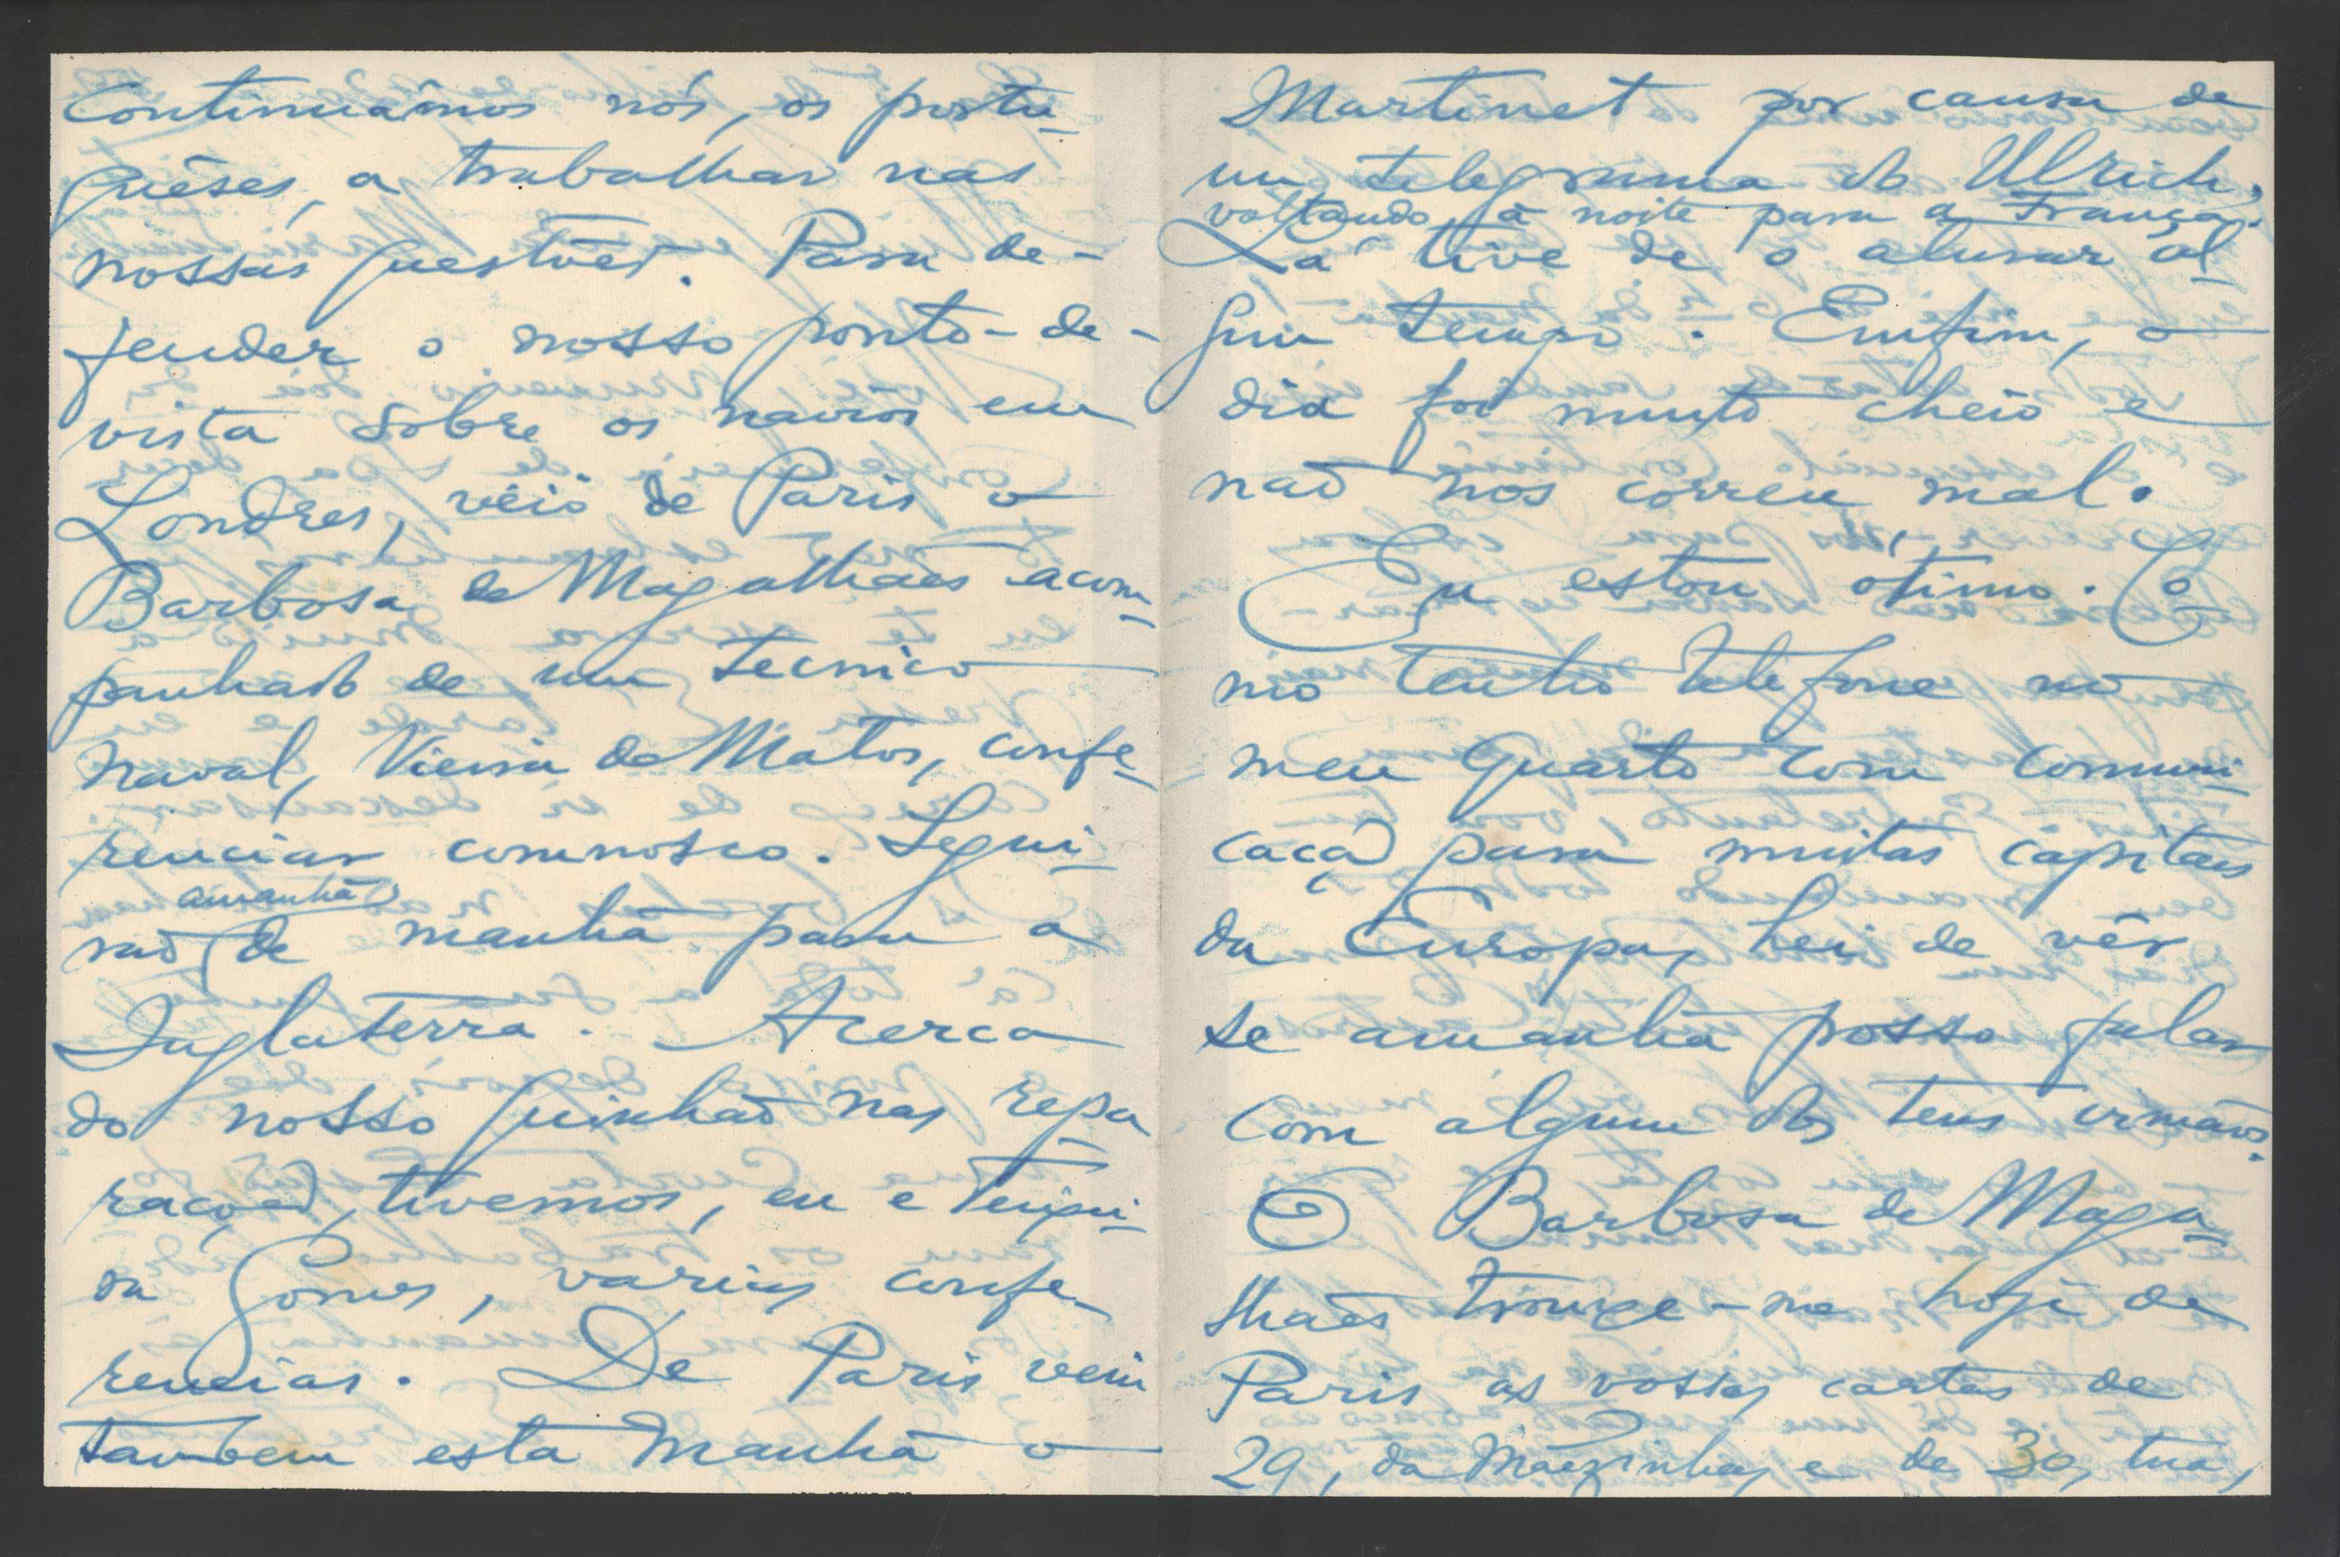 Continuâmos nós, os portu-
guêses, a trabalhar nas
nossas questões. Para de-
fender o nosso ponto-de-
vista sobre os navios em
Londres, veio de Paris o
Barbosa de Magalhães acom-
panhado de um tecnico
naval, Vieira de Matos, confe-
renciar comnosco. Segui-
amanhã
rão de manhã para a
Inglaterra. Acerca
do nosso quinhão nas repa-
rações, tivemos, eu e Teixei-
ra Gomes, varias confe-
rencias. De Paris veiu
tambem esta manhã o
Martinet por causa de
um telegrama do Ulrich,
voltando, á noite para a França.
Lá tive de o aturar al-
gum tempo. Emfim, o
dia foi muito cheio e
não nos correu mal.
Eu estou otimo. Co-
mo tenho telefone no
meu quarto com comuni-
cação para muitas capitaes
da Europa, hei de vêr
se amanhã posso falar
com algum dos teus irmãos.
O Barbosa de Maga-
lhães trouxe-me hoje de
Paris as vossas cartas de
29, da Mãezinha, e de 30, tua,